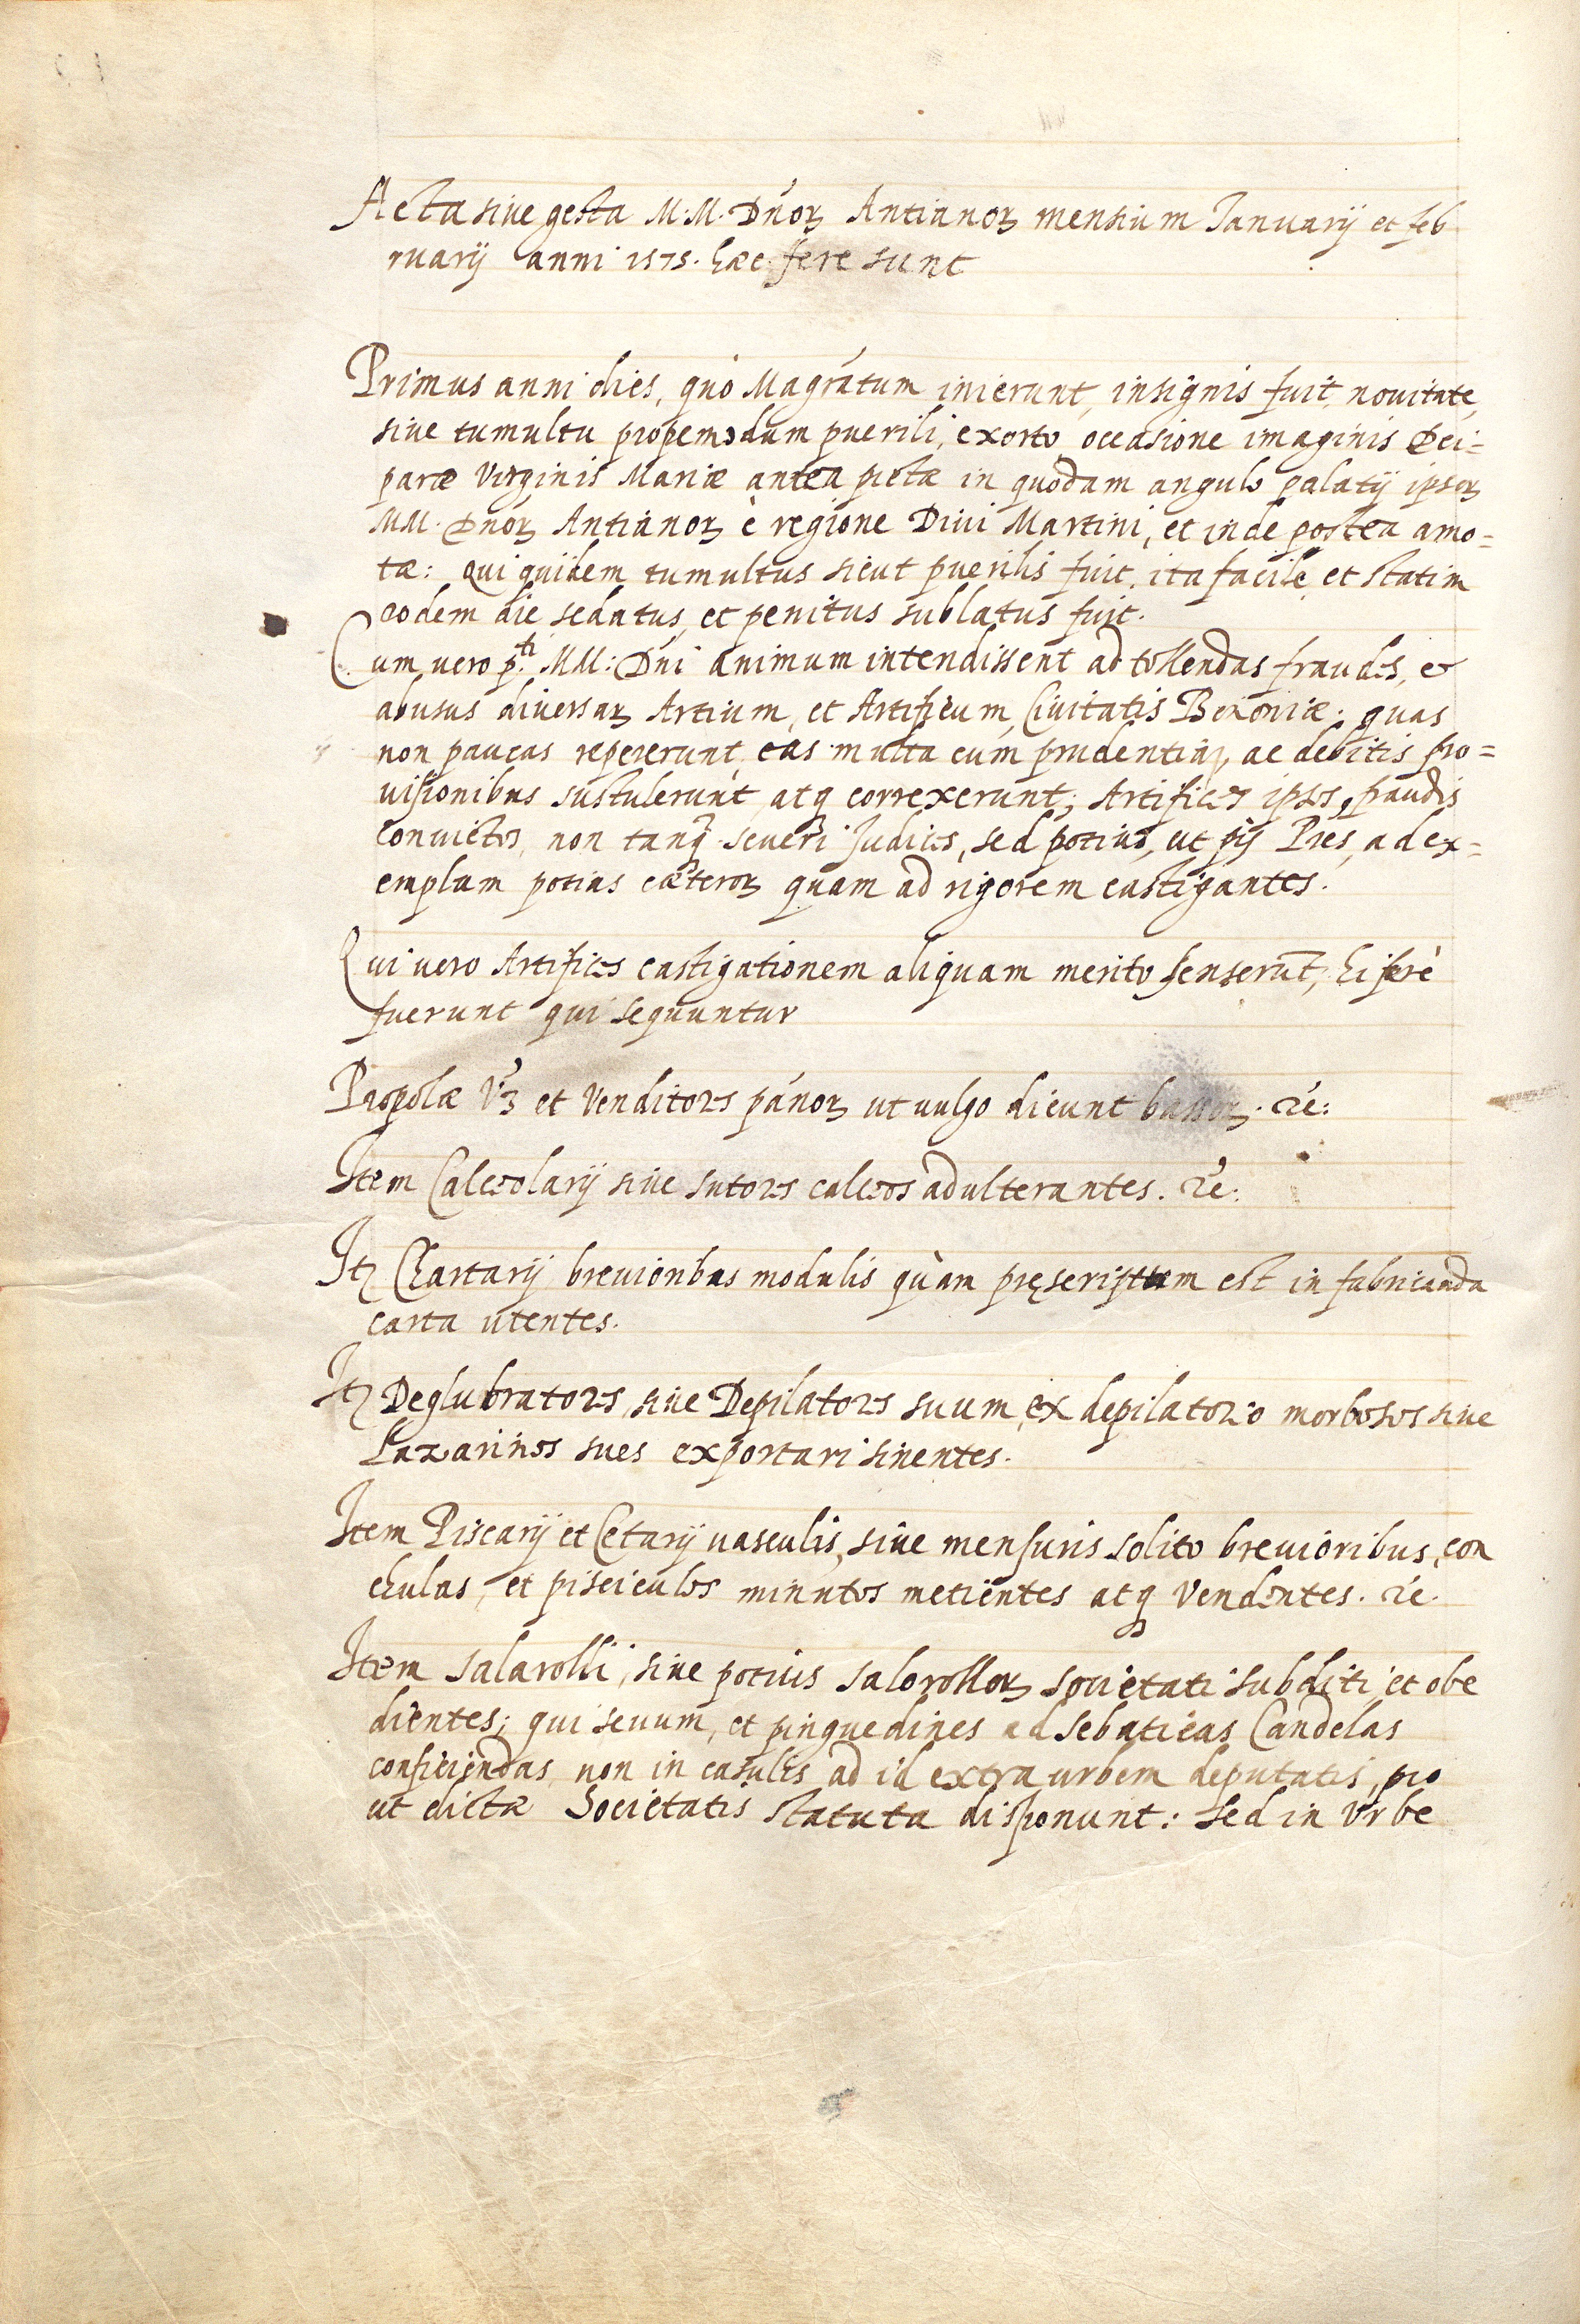 Acta siue gesta M.M. Dn̄oꝝ Antianoꝝ mensium Ianuarij et feb
ruarij anni 1575. hæc fere sunt
Primus anni dies, quò Magr̄atum inierunt, insignis fuit, nouitate,
siue tumultu propemodum puerili, exorto occasione imaginis Dei=
paræ Virginis Mariæ antea pictæ in quodam angulo palatij ipsoꝝ
MM. Dn̄oꝝ Antianoꝝ è regione Diui Martini, et inde postea amo=
tæ: Qui quidem tumultus sicut puerilis fuit, ita facile et statim
eodem die sedatus, et penitus sublatus fuit.
Cum uero p.ti MM: Dn̄i animum intendissent ad tollendas fraudes, &
abusus diuersaꝝ Artium, et Artificum, Ciuitatis Bononiæ; quas
non paucas repererunt, eas multa cum prudentia, ac debitis pro=
uisionibus sustulerunt atqꝫ correxerunt; Artifices ipsos, fraudis
conuictos, non tanqꝫ seueri Iudices, sed potius, ut pij P̄res, ad ex=
emplum potius cæteroꝝ quam ad rigorem castigantes.
Qui uero Artifices castigationem aliquam merito senserūt, hi ferè
fuerunt qui sequuntur
Propolæ Vꝫ et Venditores pānoꝝ ut uulgo dicunt bassoꝝ. &c:
Item Calceolarij siue sutores calceos adulterantes. &c:
Itꝫ Chartarij breuioribus modulis quàm pręscriptum est in fabricanda
carta utentes.
Itꝫ Deglubratores, siue Depilatores suum, ex depilatorio morbosos siue
Lazarinos sues exportari sinentes.
Item Piscarij et Cetarij uasculis, siue mensuris solito breuioribus, con
chulas, et pisciculos minutos metientes atqꝫ Vendentes. &c.
Item salarolli, siue potius salorolloꝝ societati subditi, et obe
dientes; qui seuum, et pinguedines ad sebaticas Candelas
conficiendas, non in casulis ad id extra urbem deputatis, pro
ut dictæ Societatis statuta disponunt: sed in Vrbe